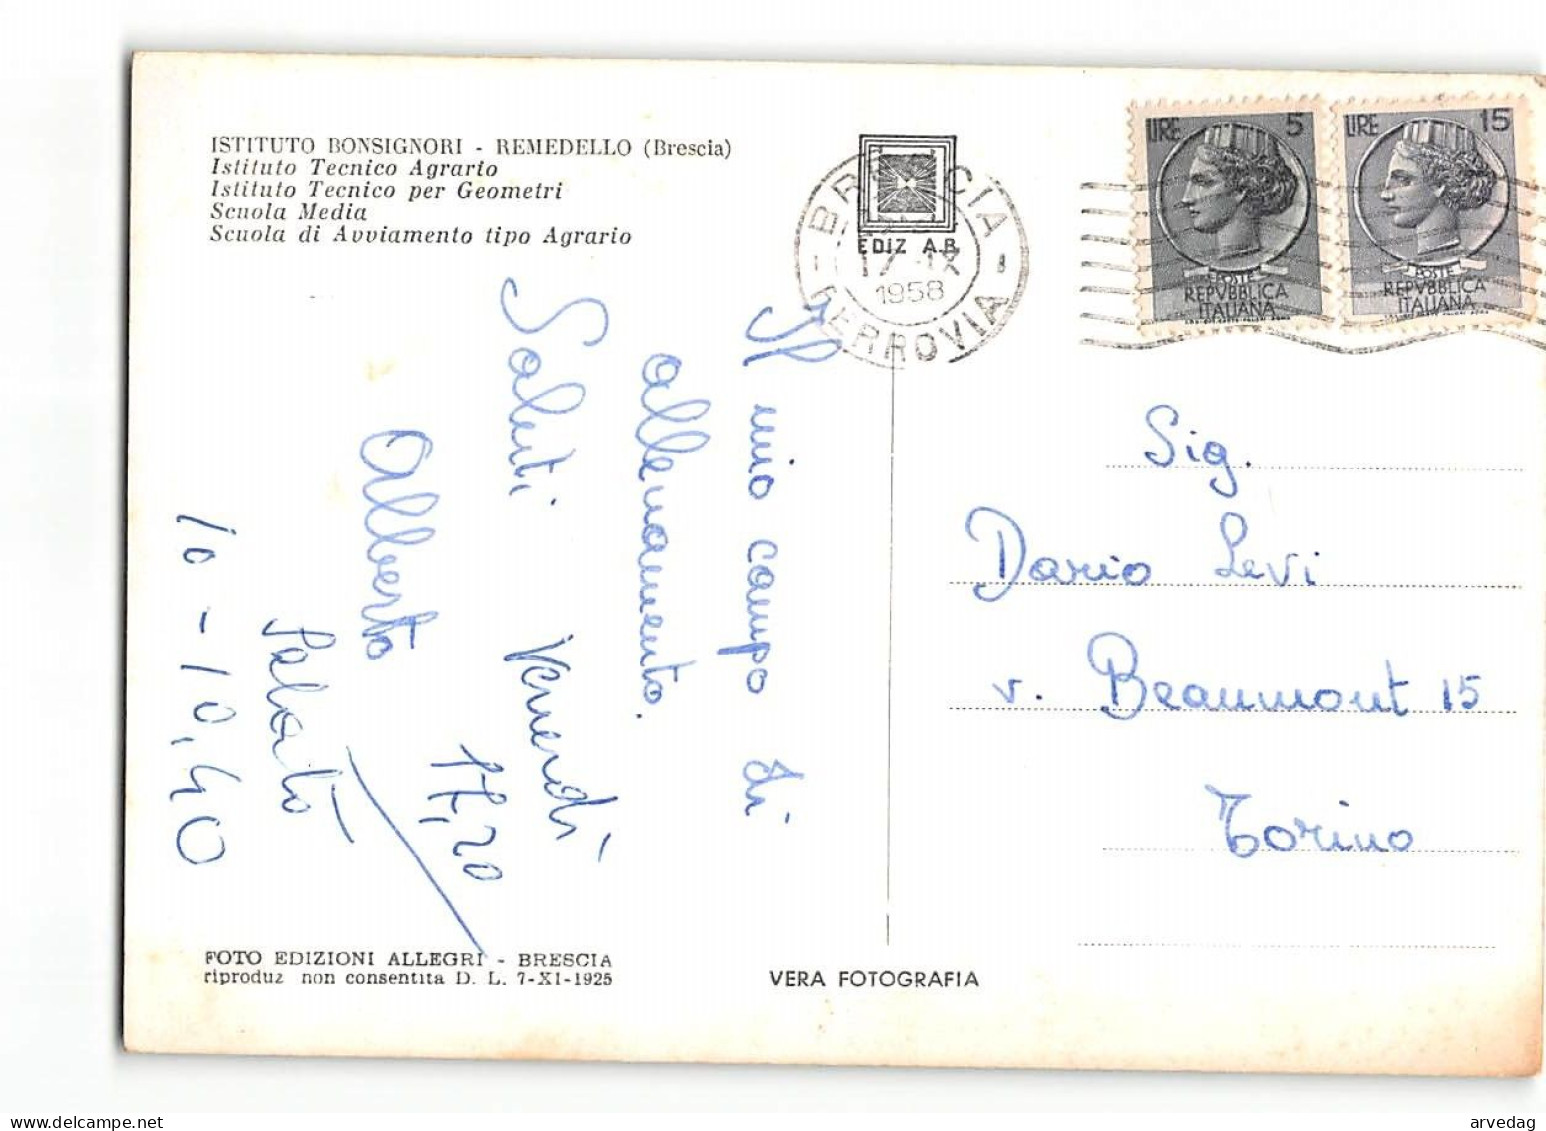 ISTITUTO BONSIGNORI - REMEDELLO (Brescia)
Istituto Tecnico Agrario
Istituto Tecnico per Geometri
Scuola Media
Scuola di Avviamento tipo Agrario
EDIZ A.B.
BRESCIA
17 IX
1958
- FERROVIA -
LIRE 5
POSTE
REPVBBLICA
ITALIANA
LIRE 15
POSTE
REPVBBLICA
ITALIANA
Il mio campo di
allenamento.
Saluti Venerdì
17,20
Alberto
Sabato
10 - 10,40
Sig.
Dario Levi
v. Beaumont 15
Torino
FOTO EDIZIONI ALLEGRI - BRESCIA
riproduz non consentita D. L. 7-XI-1925
VERA FOTOGRAFIA
arvedag